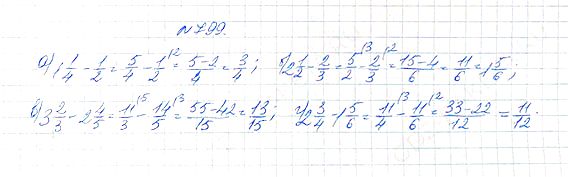 №799.
а) 1 1/4 - 1/2 = 5/4 - 1/2 |2 = 5-2/4 = 3/4; б) 2 1/2 - 2/3 = 5/2 |3 - 2/3 |2 = 15-4/6 = 11/6 = 1 5/6;
в) 3 2/3 - 2 4/5 = 11/3 |5 - 14/5 |3 = 55-42/15 = 13/15; г) 2 3/4 - 1 5/6 = 11/4 |3 - 11/6 |2 = 33-22/12 = 11/12.